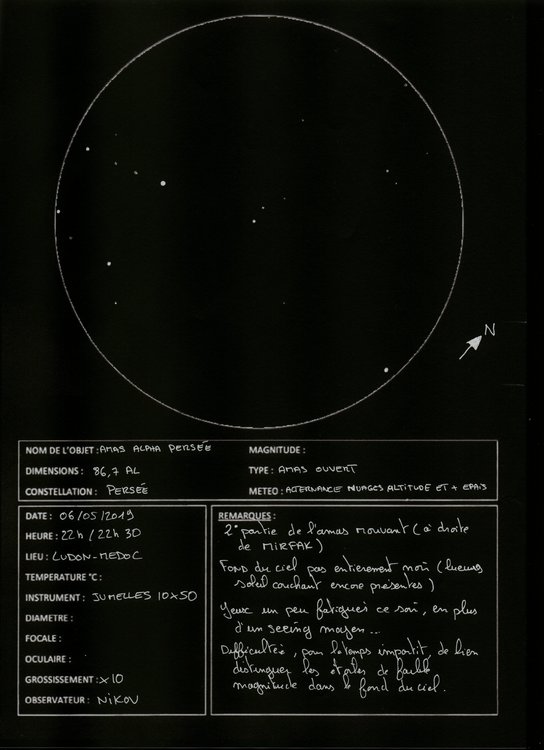 N
NOM DE L'OBJET : AMAS ALPHA PERSÉE
MAGNITUDE :
DIMENSIONS : 86,7 AL
TYPE : AMAS OUVERT
CONSTELLATION : PERSÉE
METEO : ALTERNANCE NUAGES ALTITUDE ET + EPAIS
DATE : 06/05/2019
HEURE : 22h / 22h 30
LIEU : LUDON-MEDOC
TEMPERATURE °C :
INSTRUMENT : JUMELLES 10x50
DIAMETRE :
FOCALE :
OCULAIRE :
GROSSISSEMENT : x10
OBSERVATEUR : NIKOU
REMARQUES :
2° partie de l'amas mouvant (à droite
de MIRFAK)
Fond du ciel pas entièrement noir (lueurs
soleil couchant encore présentes)
Yeux un peu fatigués ce soir, en plus
d'un seeing moyen...
Difficultés, pour le temps impartit, de bien
distinguer les étoiles de faible
magnitude dans le fond du ciel.